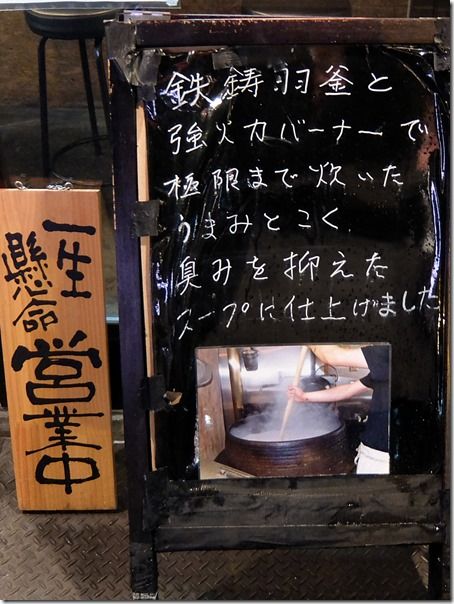 鉄鋳羽釜と
強火力バーナーで
極限まで炊いた
うまみとこく、
臭みを抑えた
スープに仕上げました
一生
懸命
営業中